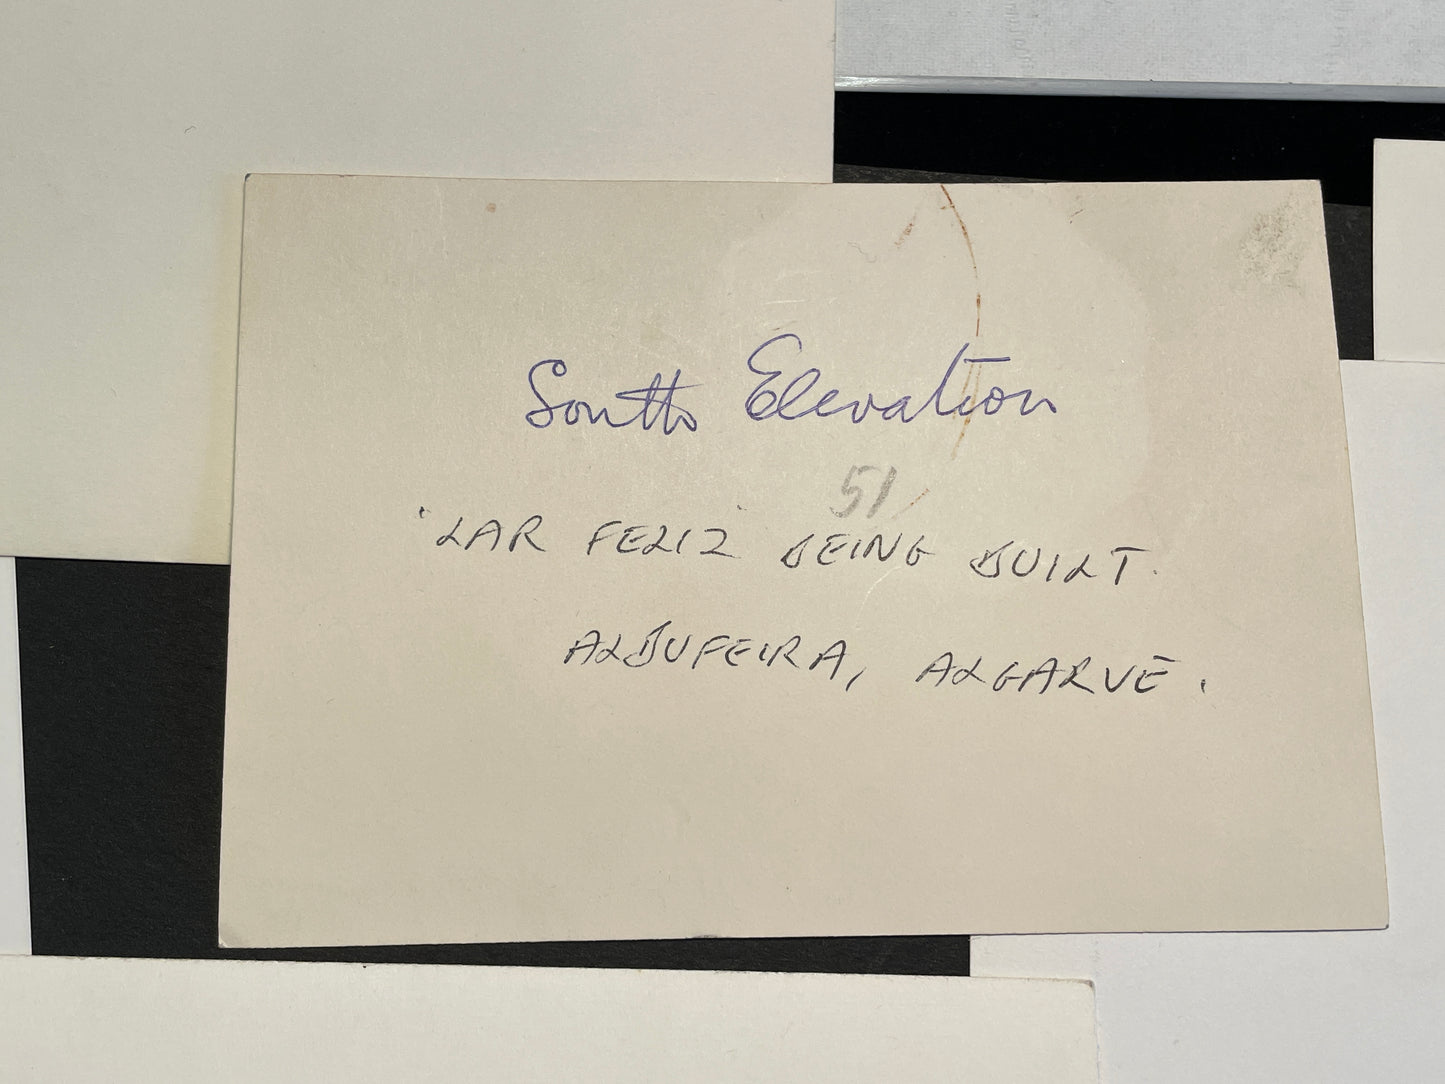 South Elevation
51
"LAR FELIZ" BEING BUILT.
ALBUFEIRA, ALGARVE.